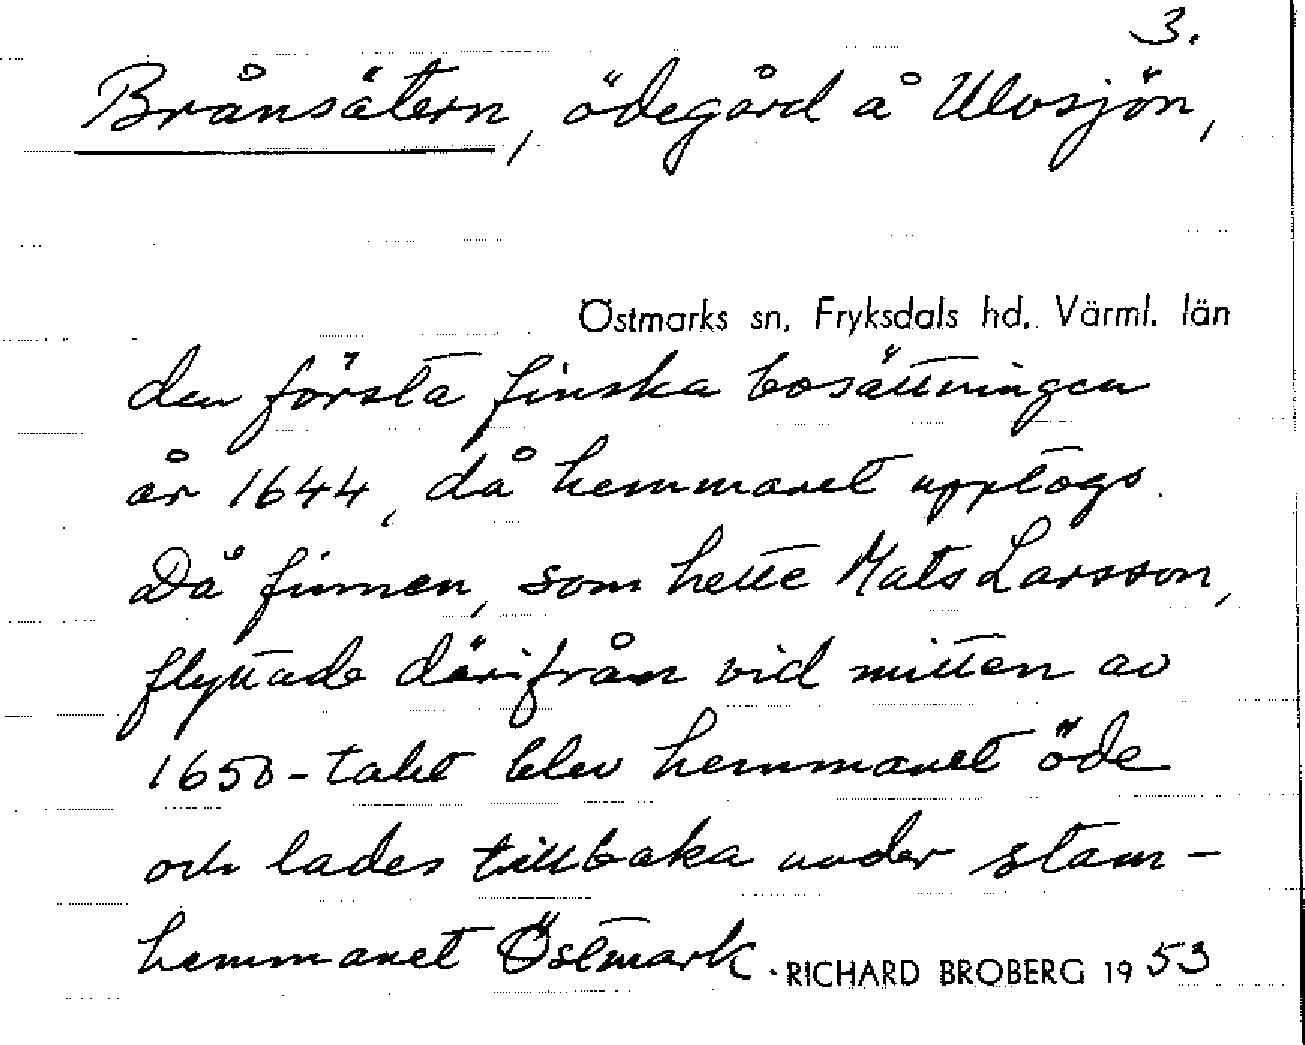 3.
Brånsätern, ödegård å Ulvsjön,
Östmarks sn, Fryksdals hd. Värml. län
den första finska bosättningen
år 1644, då hemmanet upptogs.
Då finnen, som hette Mats Larsson,
flyttade därifrån vid mitten av
1650-talet blev hemmanet öde
och lades tillbaka under stam-
hemmanet Östmark.
RICHARD BROBERG 1953